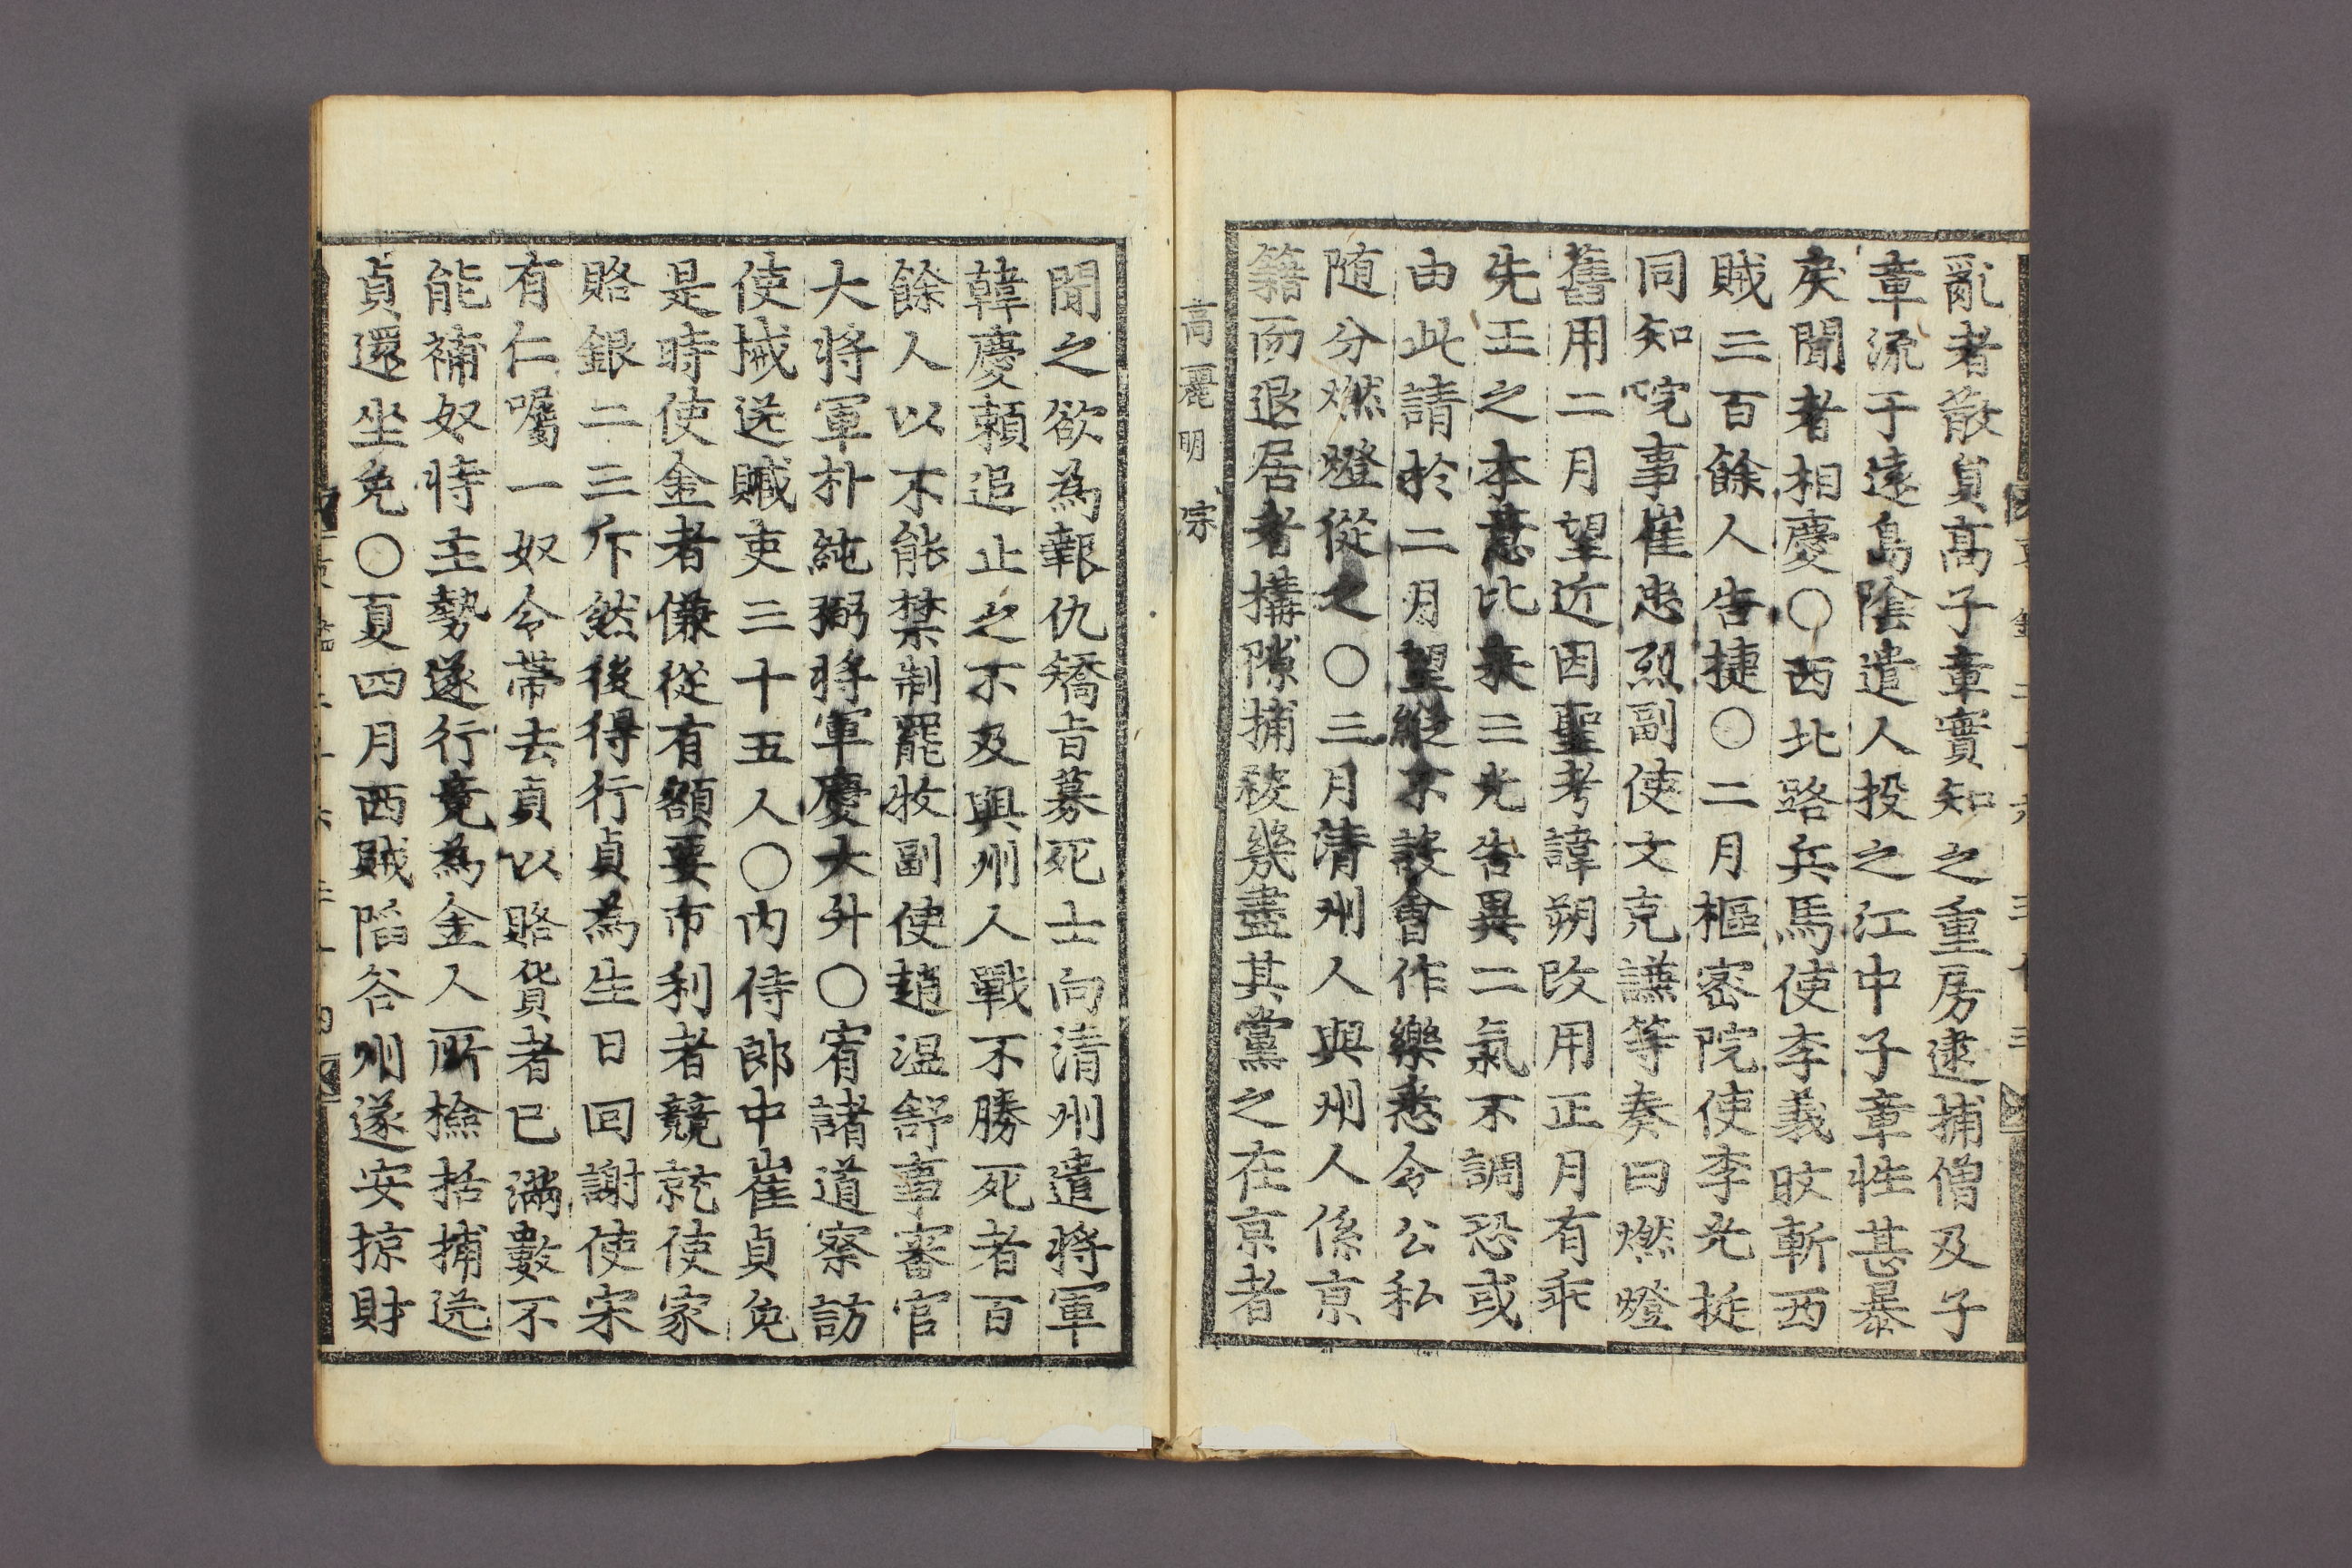 亂者散員高子章實知之重房逮捕僧及子
章流于遠島陰遣人投之江中子章性甚暴
戾聞者相慶〇西北路兵馬使李義旼斬西
賊三百餘人告捷〇二月樞密院使李光挺
同知院事崔忠烈副使文克謙等奏曰燃燈
舊用二月望近因聖考諱朔改用正月有乖
先王之本意比来三光告異二氣不調恐或
由此請於二月望縱不設會作樂悉令公私
随分燃燈從之〇三月清州人與州人係京
籍而退居者構隙捕殺幾盡其黨之在京者
高麗明宗
聞之欲為報仇矯旨募死士向清州遣將軍
韓慶頼追止之不及與州人戰不勝死者百
餘人以不能禁制罷牧副使趙温舒事審官
大将軍朴純弼将軍慶大升〇宥諸道察訪
使械送贓吏三十五人〇内侍郎中崔貞免
是時使金者傔從有額要市利者競就使家
賂銀二三斤然後得行貞為生日回謝使宋
有仁囑一奴令帶去貞以賂貨者已滿數不
能補奴恃主勢遂行竟為金人所撿括捕送
貞還坐免〇夏四月西賊陷谷州遂安掠財